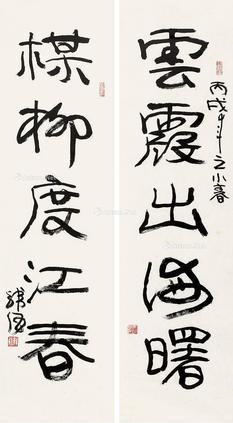 雲霞出海曙
丙戌年之小春
楳柳度江春